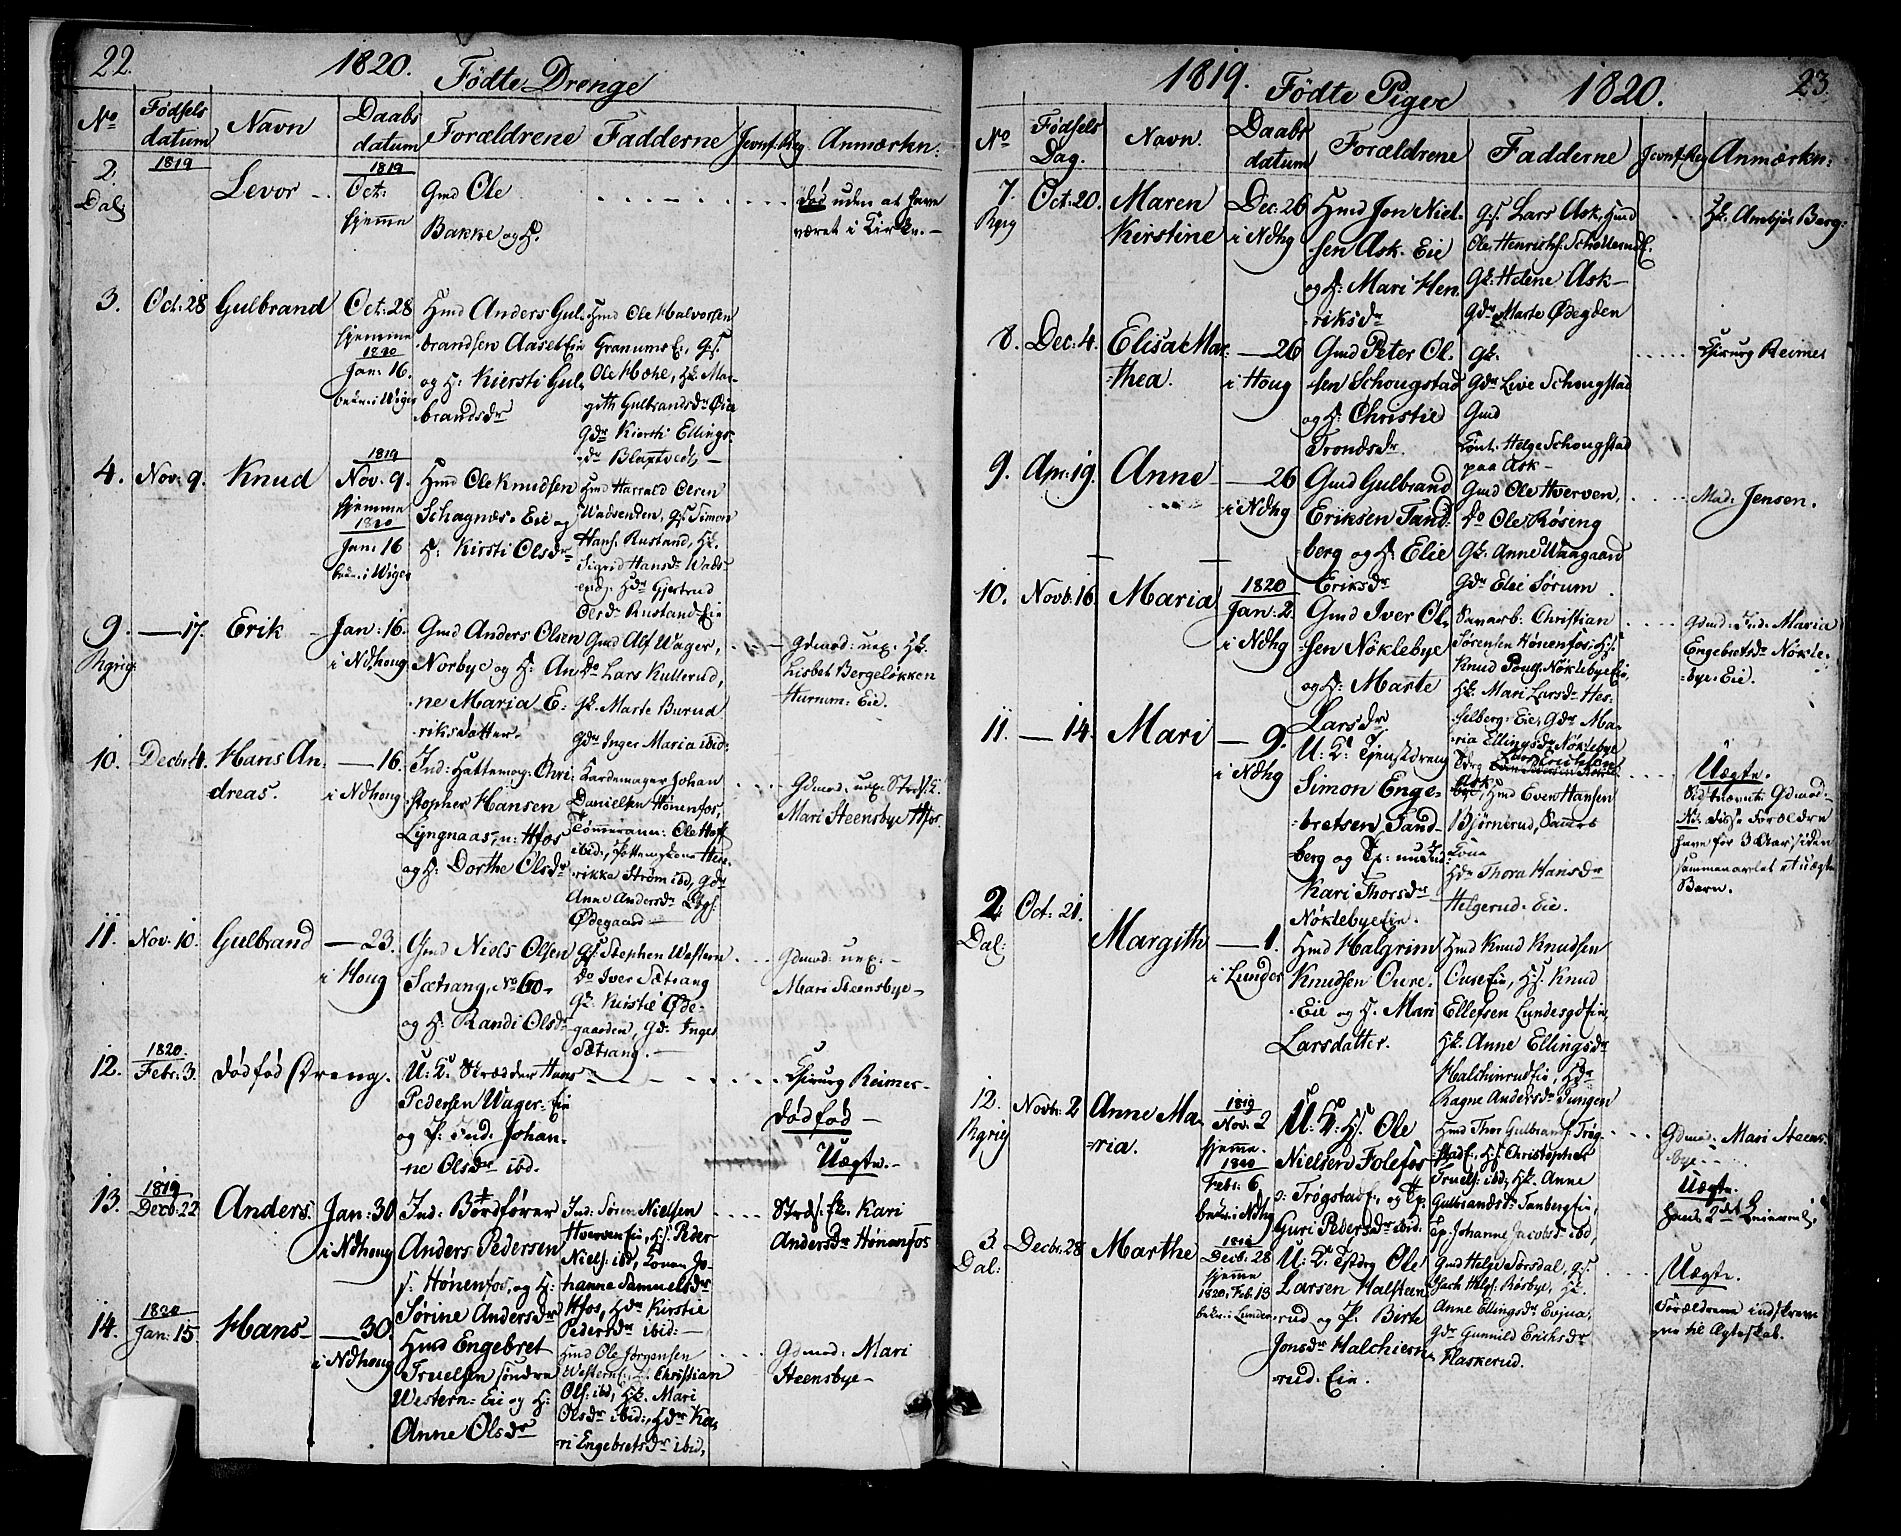 22.
1820.
Fødte Drenge
No
Fødsels datum
Navn
Daabs datum
Forældrene
Fadderne
Jevnf. Reg.
Anmærkn:
2.
Dal:
1819
Levor
1819
Oct:
hjemme
Gmd Ole
Bakke og H.
død uden at have
været i Kirken.
3.
Oct: 28
Gulbrand
Oct: 28
hjemme
1820
Jan: 16.
Hmd Anders Gul-
brandsen Aaset Eie
og H: Kiersti Gul-
brandsdr
Hmd Ole Halvorsen
Granums E:, Gs.
Ole Mæhe, Hk. Mar-
gith Gulbrandsdr Øie
Gdr Kiersti Ellings-
dr
4.
Nov: 9.
Knud
1819
Nov: 9.
hjemme
1820
Jan: 16
Hmd Ole Knudsen
Schagnæs-Eie og
H. Kirsti Olsdr
Hmd Harrald Olsen
Wadsenden, Gs. Simon
Hans. Rustand, Hk.
Sigrid Hansdr Wads-
end, Hdr Gjertrud
Olsdr Rustand-Eie
9.
Rgrig:
—17.
Erik
Jan: 16.
i Ndhoug
Gmd Anders Olsen
Norbye og H: An-
ne Maria E-
riksdatter.
Gmd Alf Wager,
do Lars Kullerud,
Gk. Marte Burud
Gdr Inger Maria ibid:
Gdmod: uex: Hk.
Lisbet Bergeløkken
Hurum: Eie.
10.
Decbr 4.
Hans An-
dreas.
—16.
i Ndhoug
Ind: Hattemog: Chri-
stopher Hansen
Lyngnaas, n: Hfos
og H: Dorthe Olsdr
Kardemager Johan
Danielsen Hønenfos,
Tømmerm: Ole Hoff
ibid:, Pottem. kone Hen-
rikke Strøm ibd, Gdr
Anne Andersdr
Ødegaard
Gdmod: uex:
Mari Steensbye Hfos.
11.
Nov. 10.
Gulbrand
—23.
i Houg
Gmd Niels Olsen
Sætrang, No 60
og H: Randi Olsdr
Gs. Stephen Western
do Iver Sætrang
Gk. Kirstie Øde-
gaarden, Gd: Inger
Sætrang.
Gdmod: uex:
Mari Steensbye
12.
1820
Febr: 3.
dødfød Dreng.
U: K: Skrædder Hans
Pedersen Wager: Eie
og P. Ind: Johan-
ne Olsdr ibd.
Chirurg Reimers
dødfød
Uægte.
13.
1819
Decbr: 22
Anders.
Jan: 30
i Ndhoug
Ind: Bordfører
Anders Pedersen
Hønenfos, og H:
Sørine Andersdr
Ind: Søren Nielsen
Hverven Eie, Hs. Peder
Niels: ibd, Konen Jo-
hanne Samuelsdr
Hfos, Hdr Kirstie
Pedersdr ibid:
Kari
Andersdr Hønenfos
14.
1820
Jan: 15
Hans
—30.
i Ndhoug
Hmd Engebret
Truelsen søndre
Western: Eie og H:
Anne Olsdr
Hmd Ole Jørgensen
Western E:, Christian
Ols: ibd, Hk. Mari
Olsdr ibid:, Hdr Ka-
ri Engebretsdr ibid,
Gdmod: Mari
Steensbye
1819.
Fødte Piger
1820.
23.
No
Fødsels Dag.
Navn.
Daabs datum
Forældrene
Fadderne
Jevnf. Reg
Anmærkn:
7.
Rgrg
Oct: 20.
Maren
Kirstine
Dec: 26
i Ndhg
Hmd Jon Niel-
sen Ask. Eie
og H: Mari Hen-
riksdr
Gs. Lars Ask, Hmd
Ole Henrichs.
Gk: Helene Ask
Gdr Marte Ødegden
Hk. Ambjør Berg:
8.
Dec: 4.
Elisa Mar-
thea.
—26
i Houg
Gmd Peter Ol-
sen Schougstad
og H: Christie
Trondsdr.
Gk:
Gdr Live Schougstad
Gmd
Helge Schougstad
paa Ask
Chirurg Reimer
9.
Apr: 19.
Anne
—26
i Ndhg
Gmd Gulbrand
Eriksen Tand-
berg og H. Elie
Eriksdr
Gmd Ole Hverven,
do Ole Røsing
Gk: Anne Waagaard
Gdr Elie Sørum
Mad: Jensen.
10.
Novb: 16
Maria
1820
Jan: 2.
i Ndhg
Gmd Iver Ol-
sen Nöklebye
og H: Marte
Larsdr
Christian
Sørensen Hønenfos, Hs.
Knud Pouls. Nöklebye Eie,
Hk. Mari Larsdr Hes-
selberg: Eie, Gdr Ma-
ria Ellingsdr Nøklebye
Gdmd: Ind: Maria
Engebretsdr Nökle-
bye: Eie.
11.
—14.
Mari
—9.
i Ndhg
U: K: Tjenstdreng
Simon Enge-
bretsen Tand-
berg og Tp:
Kari Thorsdr
Nöklebye Eie.
Hmd Even Hansen
Bjørnerud,
Kone
Hdr Thora Hansdr
Helgerud. Eie.
Uægte.
Sidstnævnte Gdmod:
No: disse Forældre
have for 3 Aar siden
sammenavlet et uægte
Barn.
2.
Dal:
Oct: 21.
Margith
—1.
i Lunder
Hmd Halgrim
Knudsen Oure-
Eie og H. Mari
Larsdatter.
Hmd Knud Knudsen
Oure Eie, Hs. Knud
Ellefsen Lundesgd Eie,
Hk. Anne Ellingsdr
Halchinrud Eie, Hdr
Ragne Andersdr Jungen
12.
Rgrig
Novbr: 2
Anne Ma-
ria.
1819
Nov. 2
hjemme.
1820
Febr: 6
U: K: Hs. Ole
Nielsen Folefos
o: Trøgstad E:, og Tp:
Guri Pedersdr ibid.
Hmd Thor Gulbrands. Trøg-
stad E:, Hs. Christopher
Truels: ibd, Hk. Anne
Gulbrandsdr Tanberg Eie,
Tp. Johanne Jacobsdr ibd,
Gdmod: Mari Steens-
bye
Uægte.
hans 2det Leiermaal,
3.
Dal:
Decbr: 28
Marthe
1819
Decb: 28
hjemme
1820, Feb. 13
U: K: Ole
Larsen Halsteen-
rud og P. Birte
Jonsdr Halchiern-
rud. Eie.
Gmd Helge Sørsdal, Gs.
Jach Hels: Bøsbye, Hk
Anne Ellingsdr Evjua,
Gdr Gunnild Erichsdr
Flaskerud.
Uægte.
Forældrene indskrevne
til Ægteskab.